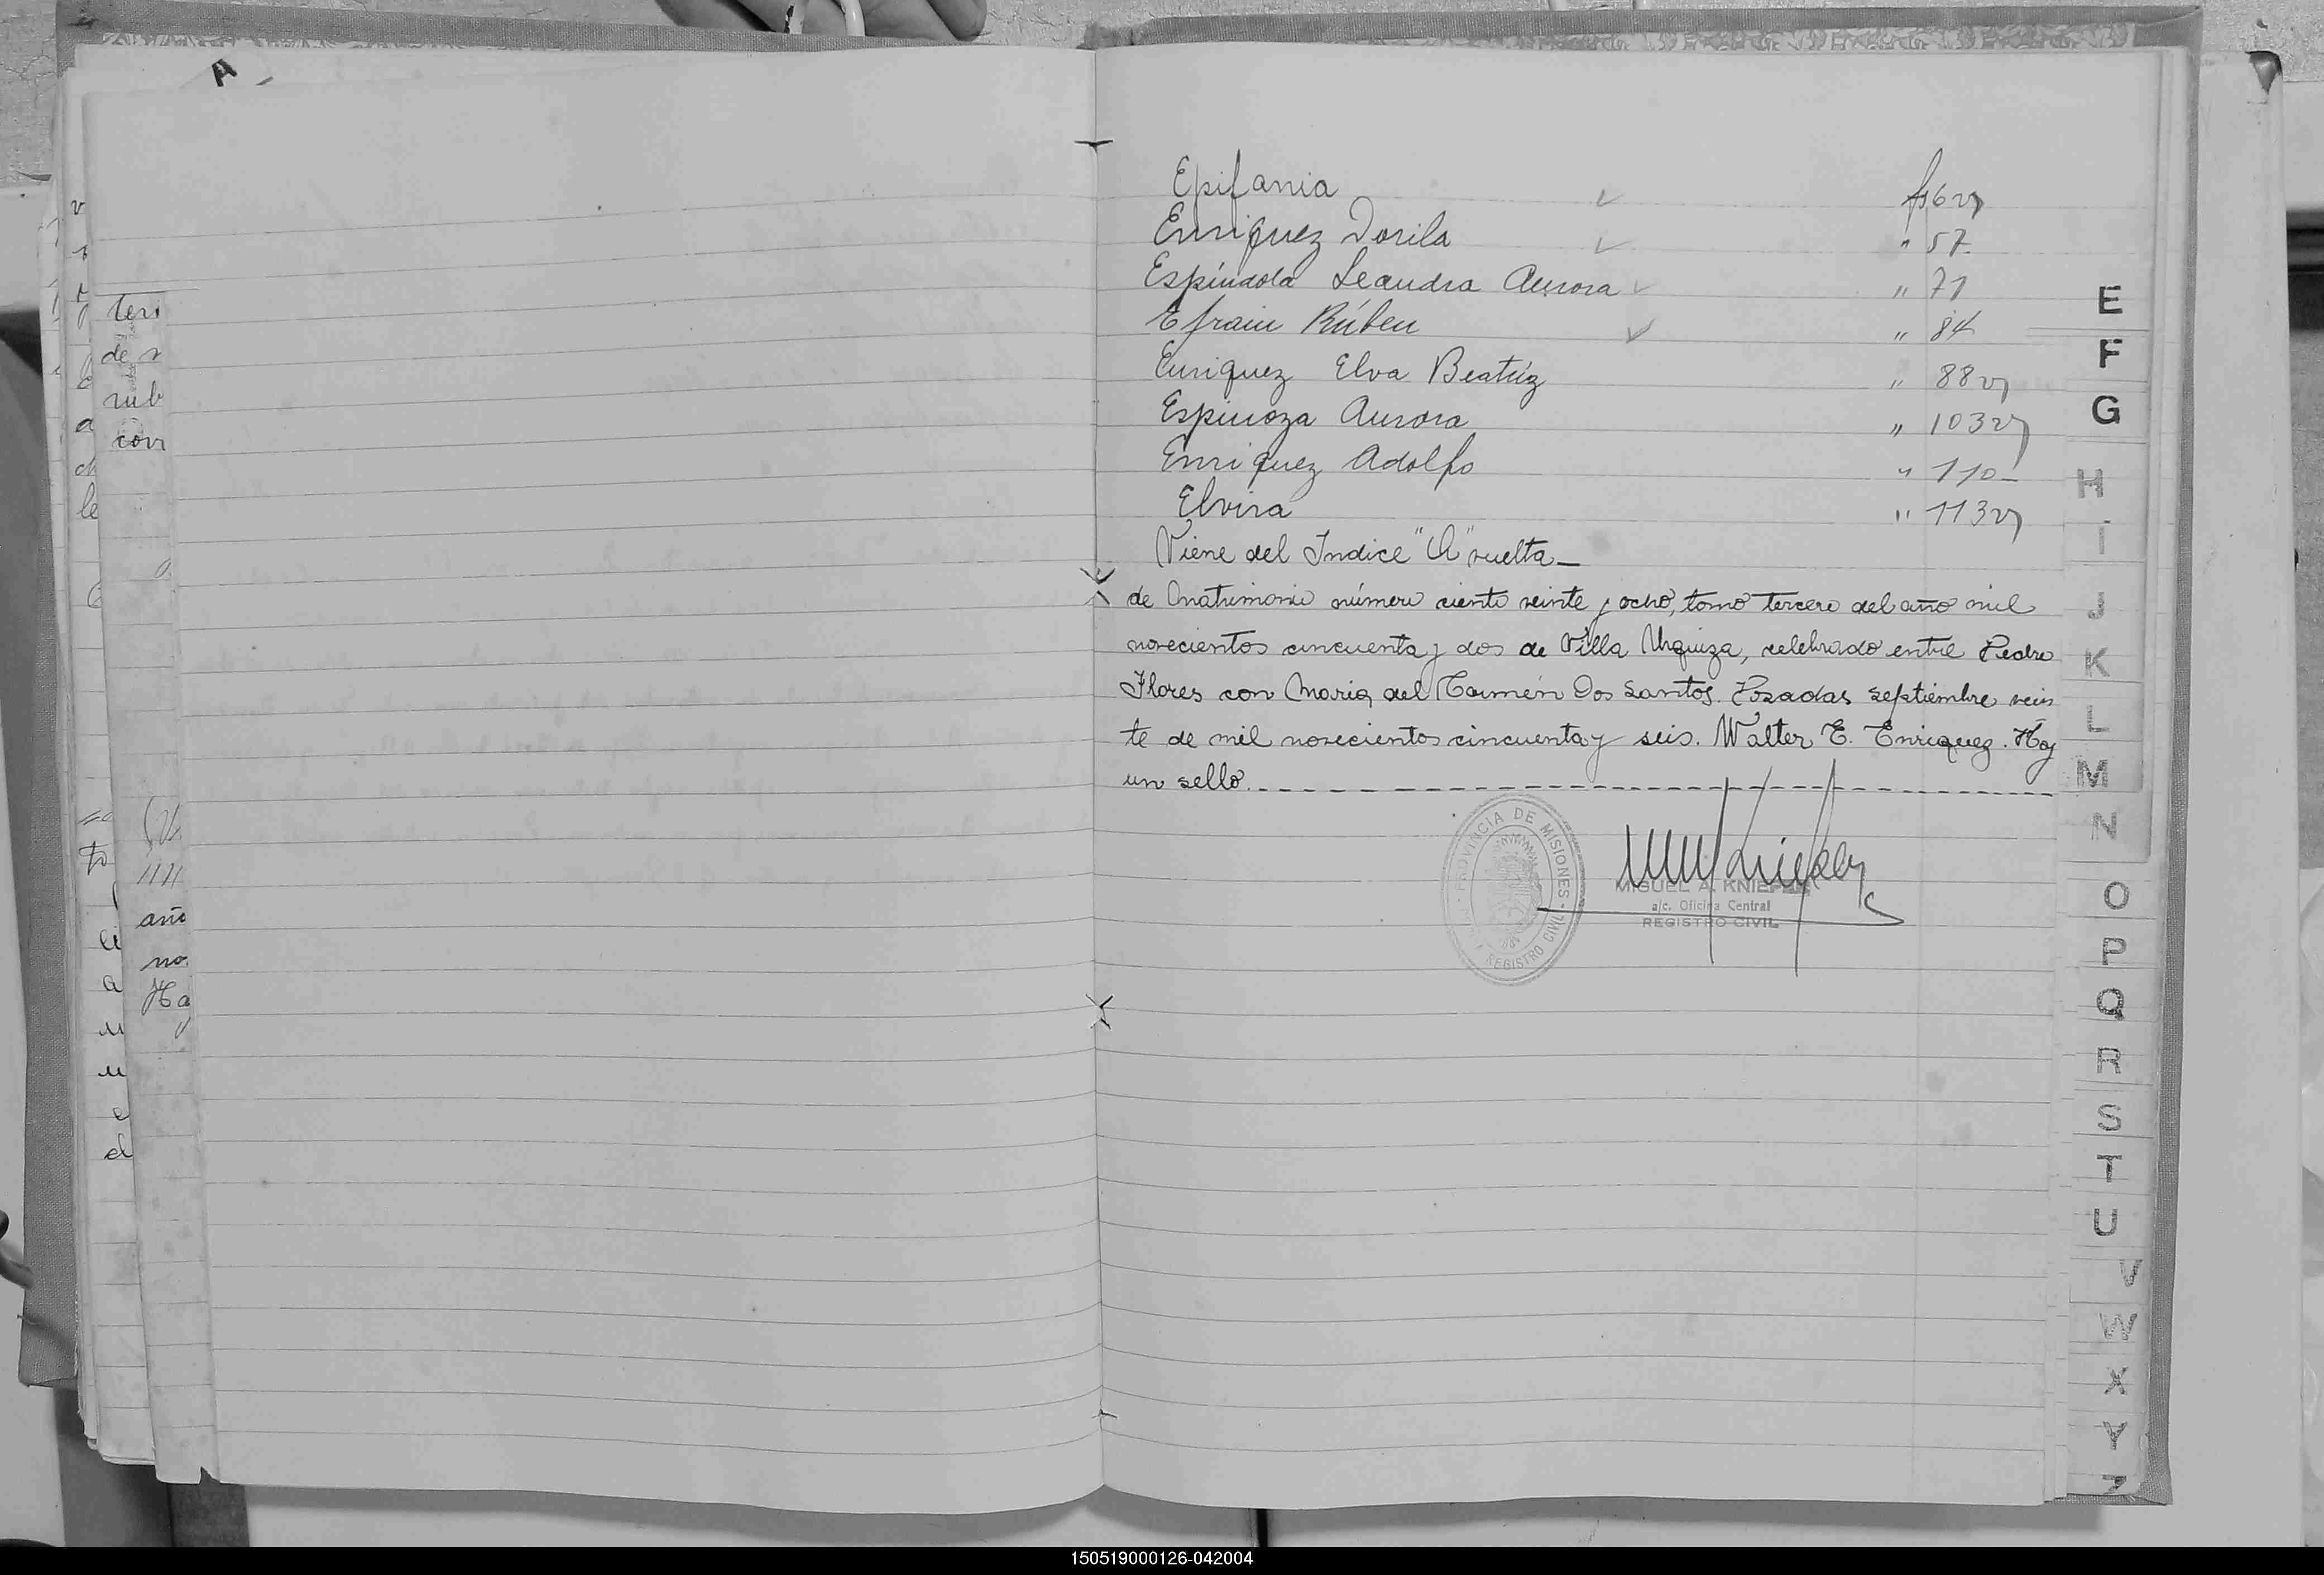 A
teri
de
rub
con
año
no
Ha
Epifania ✓ fs 6 v
Enriquez Dorila ✓ " 57
Espíndola Leandra Aurora ✓ " 71
Efrain Rúben ✓ " 84
Enriquez Elva Beatríz " 88 v
Espinoza Aurora " 103 v
Enriquez Adolfo " 110
Elvira " 113 v
Viene del Indice "A" vuelta
de Matrimonio número ciento veinte y ocho, tomo tercero del año mil
novecientos cincuenta y dos de Villa Urquiza, celebrado entre Pedro
Flores con Maria del Carmen Dos Santos. Posadas septiembre vein
te de mil novecientos cincuenta y seis. Walter E. Enriquez. Hay
un sello.
PROVINCIA DE MISIONES
REGISTRO CIVIL
MIGUEL A. KNIEPER
a/c. Oficina Central
REGISTRO CIVIL
E
F
G
H
I
J
K
L
M
N
O
P
Q
R
S
T
U
V
W
X
Y
Z
150519000126-042004